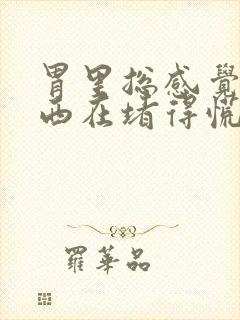 胃里总感觉
西在堵得慌
羅華品